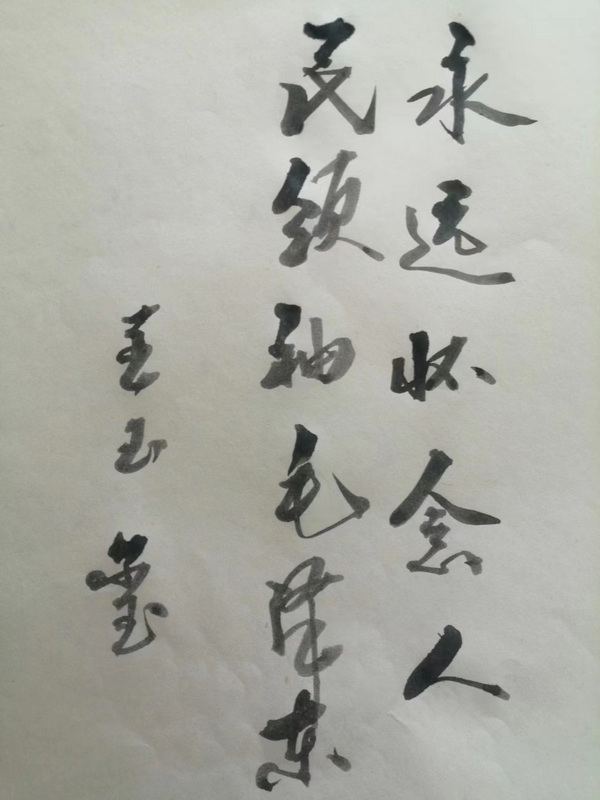 永远怀念人
民领袖毛泽东
玉玺